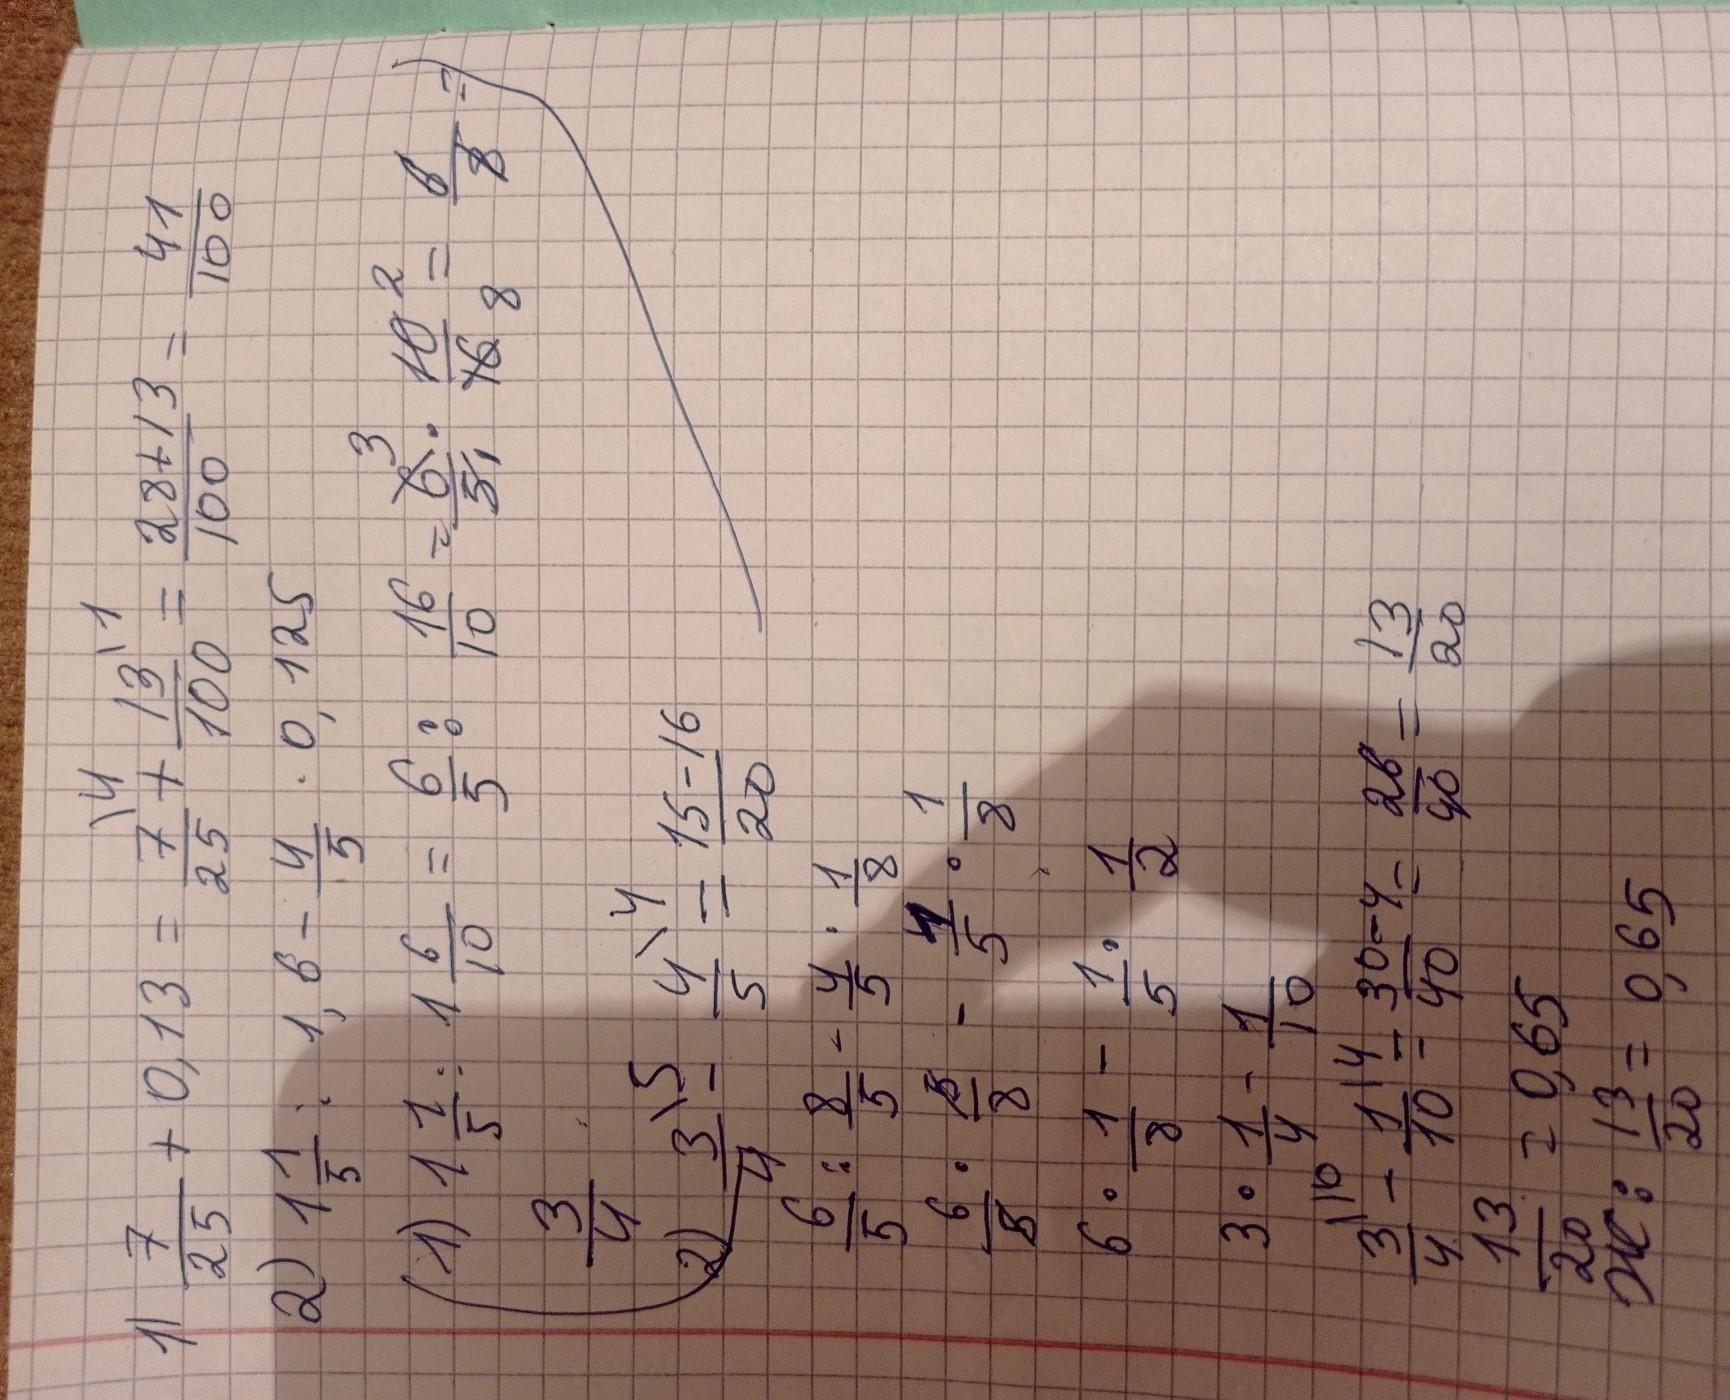 1) 7/25 + 0,13 = 7/25 \4 + 13/100 \1 = 28+13/100 = 41/100
2) 1 1/5 : 1,6 - 4/5 · 0,125
1) 1 1/5 : 1 6/10 = 6/5 : 16/10 = 6/5 3 1 · 10/16 2 8 = 6/8 =
3/4
2) 3/4 \5 - 4/5 \4 = 15-16/20
6/5 : 8/5 - 4/5 · 1/8
6/5 · 5/8 - 4/5 · 1/8
6 · 1/8 - 1/5 · 1/2
3 · 1/4 - 1/10
3/4 \10 - 1/10 \4 = 30-4/40 = 26/40 = 13/20
13/20 = 0,65
Ж: 13/20 = 0,65